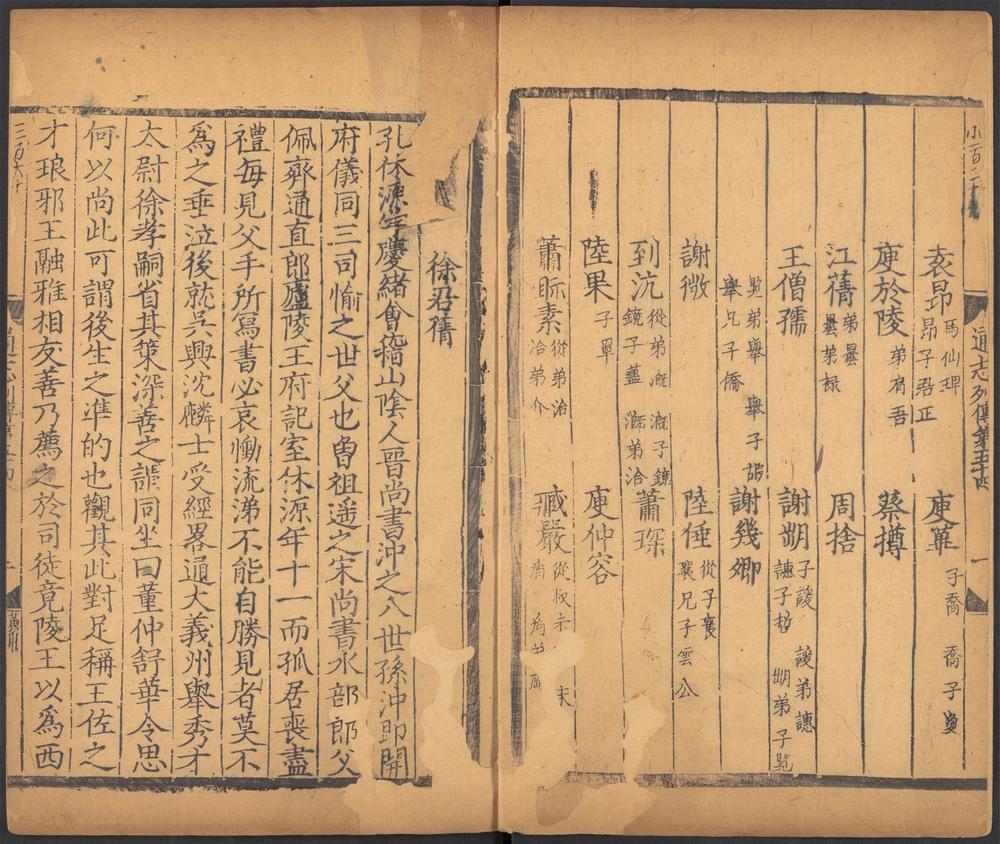 小一百二十
通志列傳第五十四
一
袁昂 馬仙琕 昂子君正 庾蓽 子喬 喬子敻
庾於陵 弟肩吾 蔡撙
江蒨 弟曇 曇弟祿 周捨
王僧孺 謝朏 子諼 諼弟譓 譓子哲 朏弟子覽
覽弟舉 舉子嘏 舉兄子僑 謝幾卿
謝微 陸倕 從子襄 襄兄子雲公
到沆 從弟溉 溉子鏡 鏡子藎 溉弟洽 蕭琛
陸杲 子罩 庾仲容
蕭眎素 從弟洽 洽弟介 臧嚴 從叔未
徐君蒨
孔休源字慶緒會稽山陰人晉尚書沖之八世孫沖即開
府儀同三司愉之世父也曾祖遥之宋尚書水部郎父
佩齊通直郎廬陵王府記室休源年十一而孤居喪盡
禮每見父手所寫書必哀慟流涕不能自勝見者莫不
爲之垂泣後就吳興沈驎士受經畧通大義州舉秀才
太尉徐孝嗣省其策深善之謂同坐曰董仲舒華令思
何以尚此可謂後生之準的也觀其此對足稱王佐之
才琅邪王融雅相友善乃薦之於司徒竟陵王以爲西
三百六十
通志列傳第五十四
一